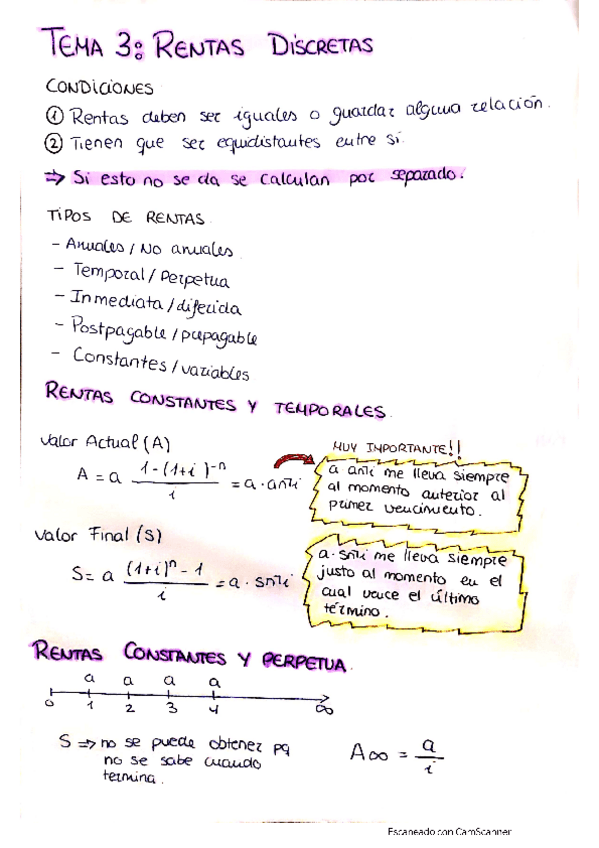 TEMA 3: RENTAS DISCRETAS
CONDICIONES
① Rentas deben ser iguales o guardar alguna relación.
② Tienen que ser equidistantes entre sí.
⇒ Si esto no se da se calculan por separado.
TIPOS DE RENTAS
- Anuales / No anuales
- Temporal / Perpetua
- Inmediata / diferida
- Postpagable / prepagable
- Constantes / variables
RENTAS CONSTANTES Y TEMPORALES.
Valor Actual (A)
A = a (1-(1+i)^-n)/i = a · an┐i
MUY IMPORTANTE!!
a · an┐i me lleva siempre
al momento anterior al
primer vencimiento.
Valor Final (S)
S = a ((1+i)^n - 1)/i = a · sn┐i
a · sn┐i me lleva siempre
justo al momento en el
cual vence el último
término.
RENTAS CONSTANTES Y PERPETUA.
a a a a
0 1 2 3 4 ∞
S ⇒ no se puede obtener pq
no se sabe cuando
termina.
A∞ = a/i
Escaneado con CamScanner